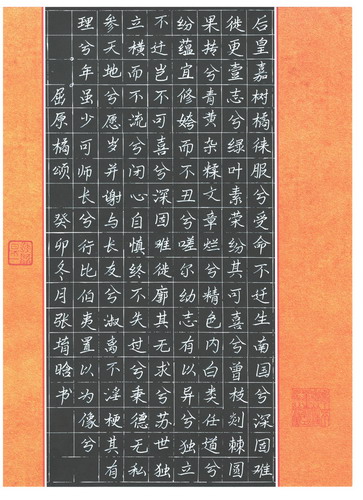 后皇嘉树橘徕服兮受命不迁生南国兮深固难
徙更壹志兮绿叶素荣纷其可喜兮曾枝剡棘圆
果抟兮青黄杂糅文章烂兮精色内白类任道兮
纷蕴宜修姱而不丑兮嗟尔幼志有以异兮独立
不迁岂不可喜兮深固难徙廓其无求兮苏世独
立横而不流兮闭心自慎终不失过兮秉德无私
参天地兮愿岁并谢与长友兮淑离不淫梗其有
理兮年虽少可师长兮行比伯夷置以为像兮
屈原橘颂 癸卯冬月张增晗书